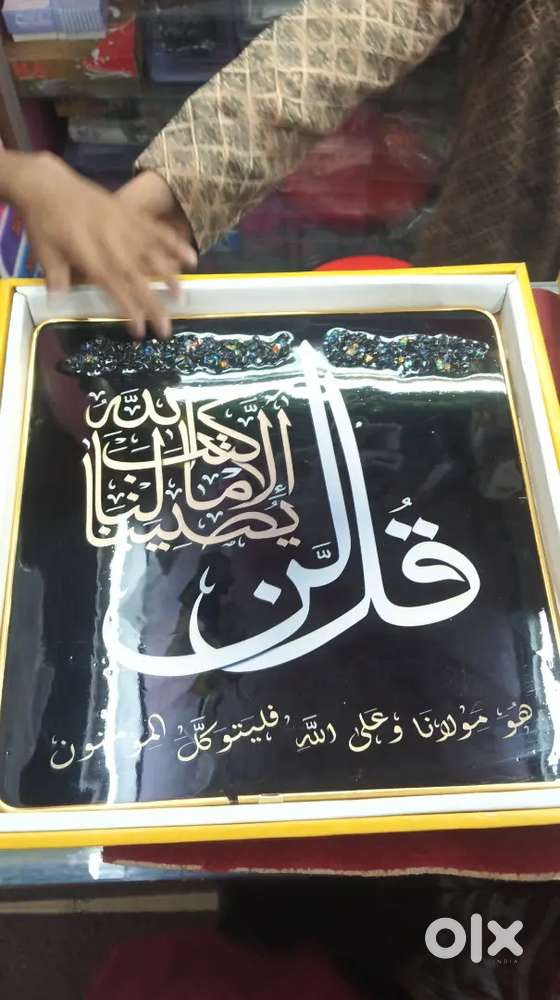 قُل لَّن
يُصيبنا إلا ما كتب اللَّه لنا
هُو مَولانا وعَلى اللَّهِ فليتوكَّل المومنون
olx
INDIA